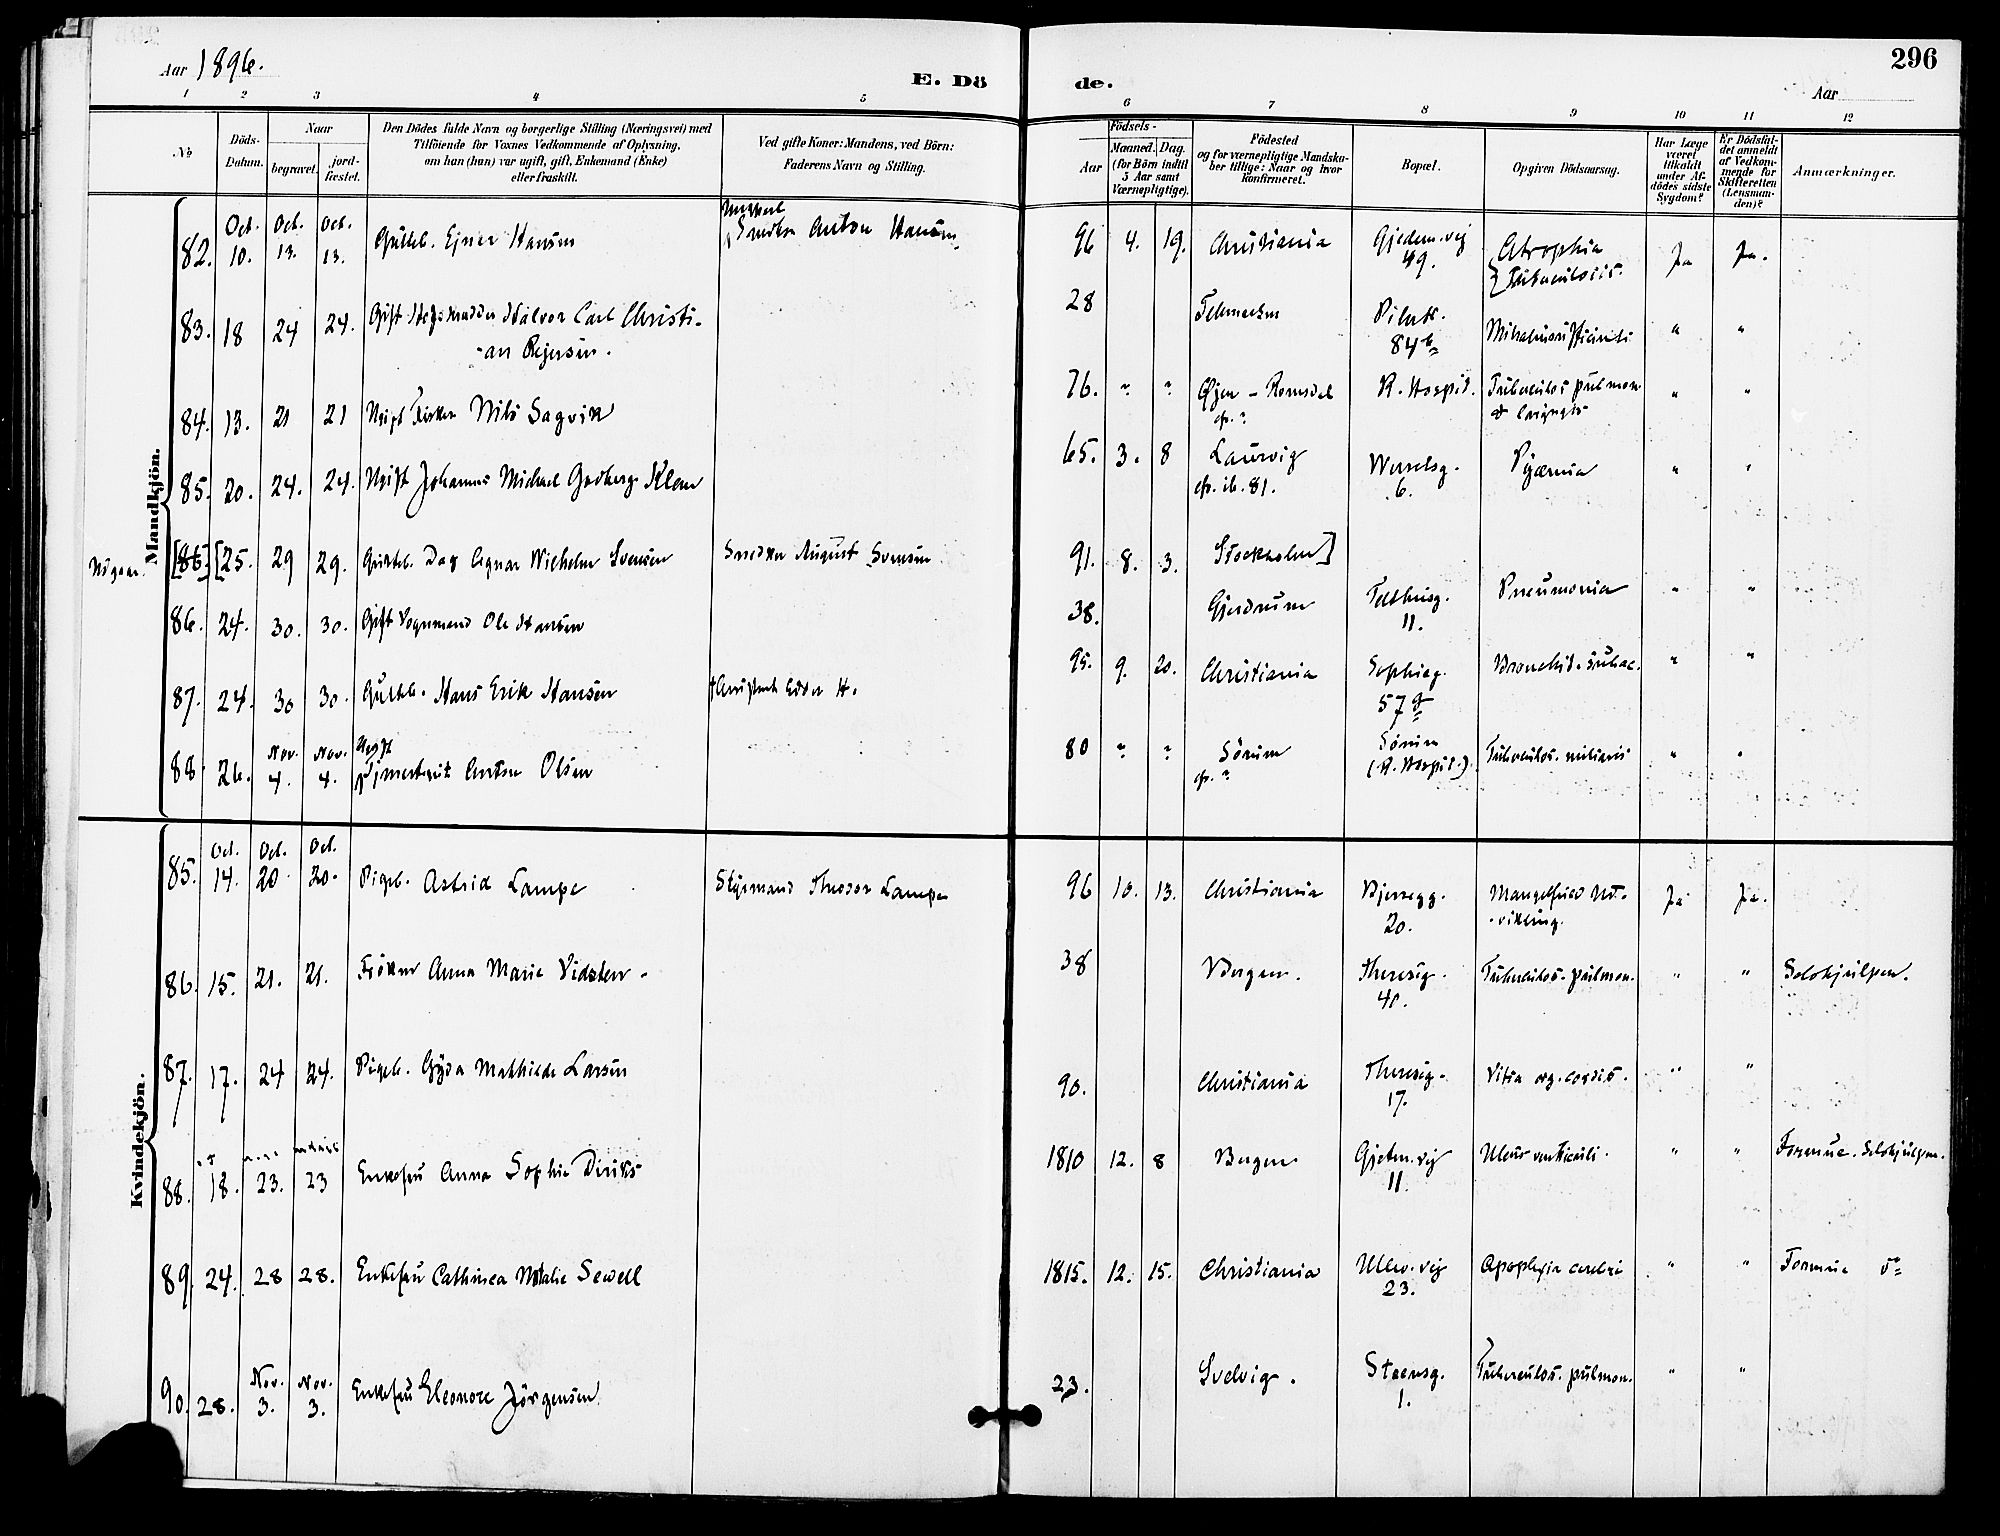 Aar 1896.
E. Dö
de.
296
Aar
1 2 3 4 5 6 7 8 9 10 11 12
No
Döds-
Datum.
Naar
begravet.
jord-
fæstet.
Den Dödes fulde Navn og borgerlige Stilling (Næringsvei) med
Tilföiende for Voxnes Vedkommende af Oplysning,
om han (hun) var ugift, gift, Enkemand (Enke)
eller fraskilt.
Ved gifte Koner: Mandens, ved Börn:
Faderens Navn og Stilling.
Födsels-
Aar
Maaned. Dag.
(for Börn indtil
5 Aar samt
Værnepligtige).
Födested
og for værnepligtige Mandska-
ber tillige: Naar og hvor
konfirmeret.
Bopæl.
Opgiven Dödsaarsag.
Har Læge
været
tilkaldt
under Af-
dödes sidste
Sygdom?
Er Dödsfal-
det anmeldt
af Vedkom-
mende for
Skifteretten
(Lensman-
den)?
Anmærkninger.
Mandkjön.
Oct. Oct. Oct.
82. 10. 13. 13. Gutteb. Ejnar Hansen Snedker Anton Hansen 96 4. 19. Christiania Gjetem. vej 49. Atrophia Tuberculosis. Ja Ja.
83. 18 24 24. Gift Halvor Carl Christi-
-an Rejersen. 28 Pilestr. 84b " "
84. 13. 21 21 Ugift Fisker Nils Sagvik 76. " " - Romsdal cfr. ? R. Hospit. Tuberculos pulmon. & laryngis " "
85. 20. 24. 24. Ugift Johannes Michael Klem 65. 3. 8 Laurvig cfr. ib. 81. Wesselsg. 6. Pyæmia " "
[86] [25. 29 29. Gutteb. Dag Wilhelm Svensen Snedker August Svensen 91. 8. 3. Stockholm]
86. 24. 30. 30. Gift Vognmand Ole Hansen 38. Gjerdrum 11. Pneumonia " "
87. 24. 30 30. Gutteb. Hans Erik Hansen H. 95. 9. 20. Christiania Sophieg. 57 " "
Nov. Nov.
88 26. 4. 4. Ugift Anton Olsen 80 " " Sörum cfr. ? Sörum (R. Hospit.). Tuberculos. miliaris " "
Kvindekjön.
Oct. Oct. Oct.
85. 14. 20 20. Pigeb. Astrid Lampe Styrmand Theodor Lampe 96 10. 13. Christiania Bjerregg. 20. Mangelfuld Ud-
-vikling. Ja Ja.
86. 15. 21. 21. Fröken Anna Marie Vidsten. 38 Bergen. Theresesg. 40. Tuberculos. pulmon. " " Selvhjulpen.
87. 17. 24 24. Pigeb. Gyda Mathilde Larsen 90. Christiania Theresesg. 17. Vitia org. cordis. " "
88. 18. 23. 23 Enkefru Anna Sophie Diriks 1810 12. 8 Bergen Gjetem. vej 11. Ulcus ventriculi. " " Formue. Selvhjulpen.
89. 24. 28 28. Enkefru Cathinca Natalie Sewell 1815. 12. 15. Christiania Ullev. vej 23. Apoplexia cerebri " " Formue do
Nov. Nov.
90. 28. 3. 3. Enkefru Eleonore Jörgensen 23. Svelvig. Steensg. 1. Tuberculos. pulmon. " "